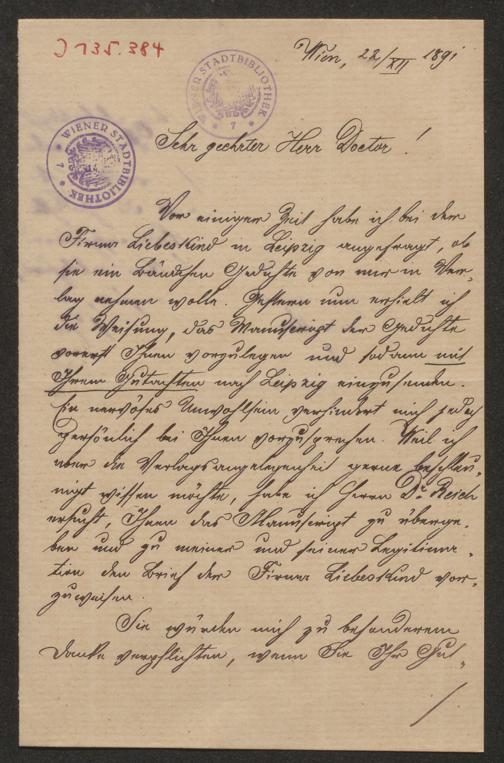 J 135.384
Wien, 22/XII 1891
WIENER STADTBIBLIOTHEK
7
WIENER STADTBIBLIOTHEK
7
Sehr geehrter Herr Doctor!
Vor einiger Zeit habe ich bei der
Firma Liebeskind in Leipzig angefragt, ob
sie ein Bändchen Gedichte von mir in Ver-
lag nehmen wolle. Gestern nun erhielt ich
die Weisung, das Manuscript der Gedichte
vorerst Ihnen vorzulegen und sodann mit
Ihrem Gutachten nach Leipzig einzusenden.
Ein nervöses Unwohlsein verhindert mich jedoch
persönlich bei Ihnen vorzusprechen. Weil ich
aber die Verlagsangelegenheit gerne beschleu-
nigt wissen möchte, habe ich Herrn Dr Reich
ersucht, Ihnen das Manuscript zu überge-
ben und zu meiner und seiner Legitima-
tion den Brief der Firma Liebeskind vor-
zuweisen.
Sie würden mich zu besonderem
Danke verpflichten, wenn Sie Ihr Gut-